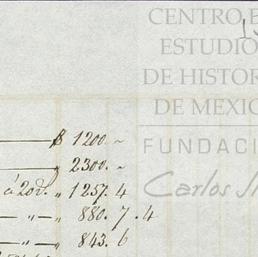 CENTRO
ESTUDIO
DE HISTOR
DE MEXIC
FUNDACI
Carlos Sl
$ 1200. ~
" 2300. ~
á 20d. " 1257. 4
" — " 880. 7. 4
" — " 843. 6